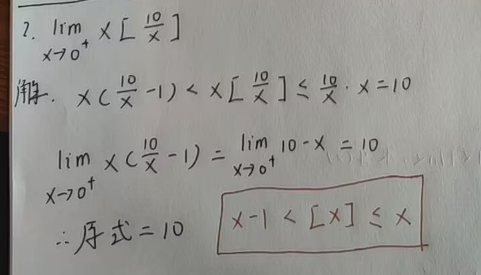 2. lim x→0⁺ x[10/x]
解. x(10/x -1) < x[10/x] ≤ 10/x · x = 10
lim x→0⁺ x(10/x -1) = lim x→0⁺ 10-x = 10
∴ 原式 = 10
x-1 < [x] ≤ x